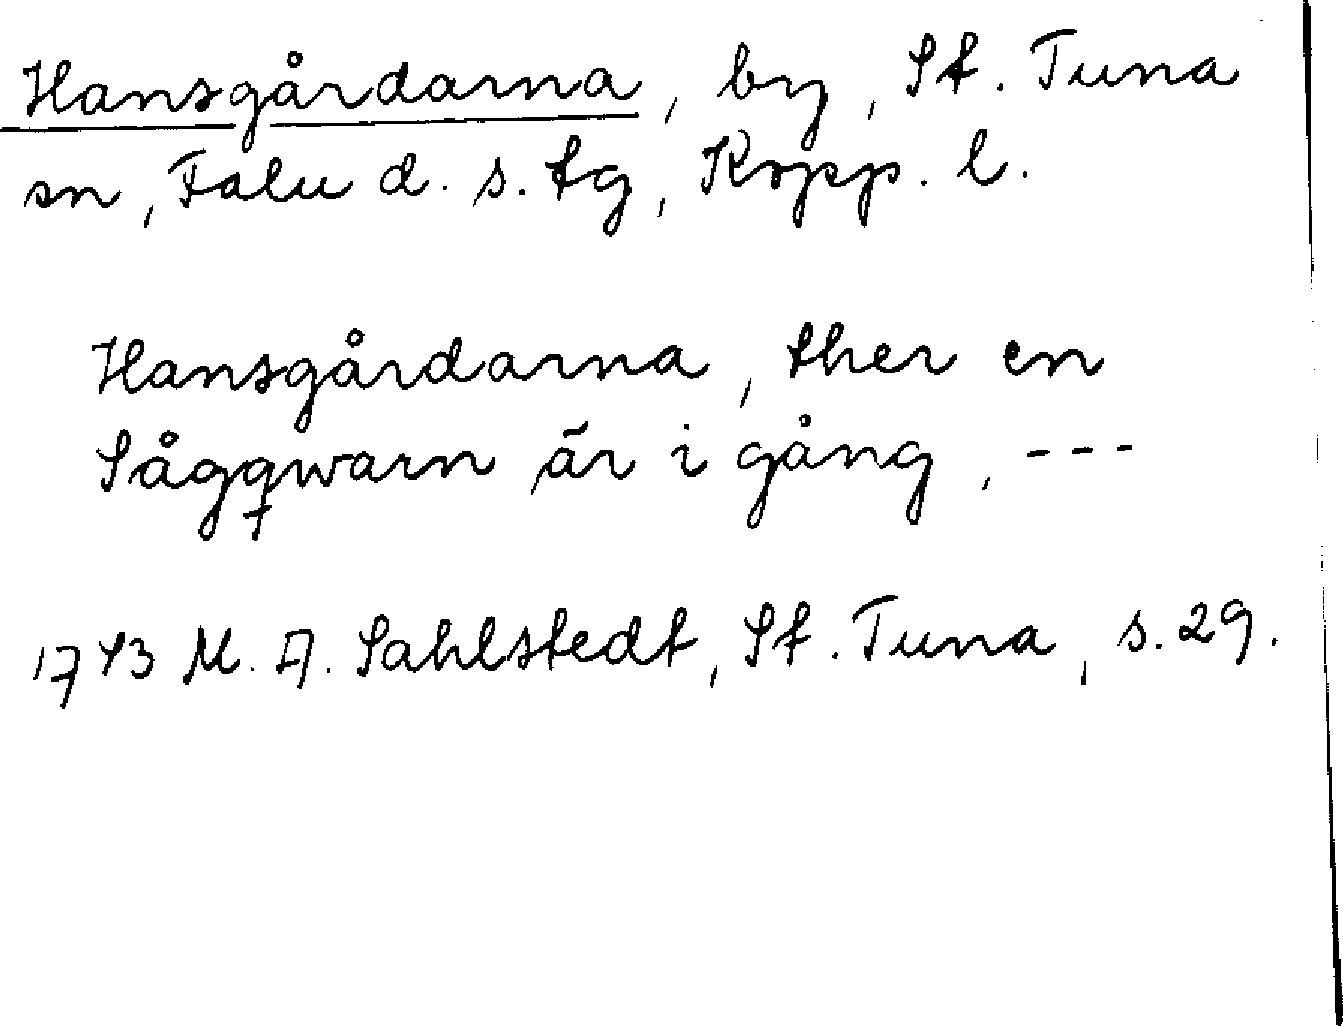 Hansgårdarna, by, St. Tuna
sn, Falu d. s. tg, Kopp. l.
Hansgårdarna, ther en
Sågqwarn är i gång, ---
1743 M. A. Sahlstedt, St. Tuna, s. 29.